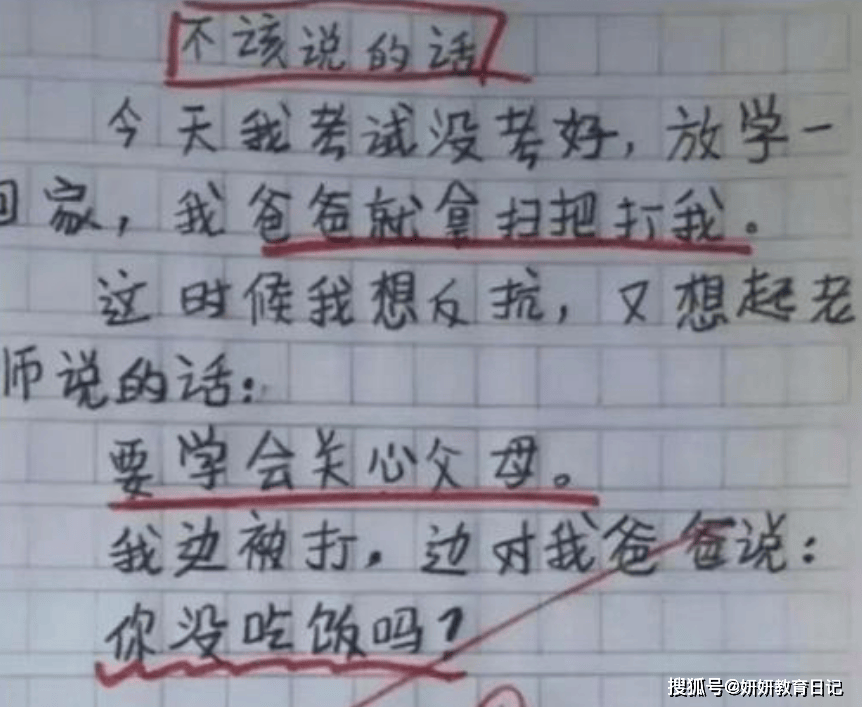 不该说的话
今天我考试没考好，放学一
回家，我爸爸就拿扫把打我。
这时候我想反抗，又想起老
师说的话：
要学会关心父母。
我边被打，边对我爸爸说：
你没吃饭吗？
搜狐号@妍妍教育日记